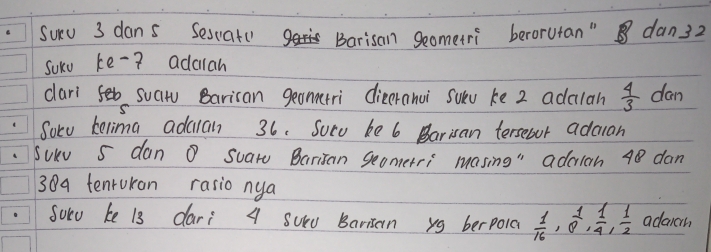 Suku 3 dan 5 Sesuatu garis Barisan geometri berorutan" 8 dan 32
Suku ke-7 adalah
dari seb suatu Barisan geometri diketahui suku ke 2 adalah 4/3 dan
Suku kelima adalah 36. Suku ke 6 Barisan tersebut adalah
Suku 5 dan 8 suatu Barisan geometri masing" adalah 48 dan
384 tentukan rasio nya
Suku ke 13 dari 4 suku Barisan yg berpola 1/16, 1/8, 1/4, 1/2 adalah